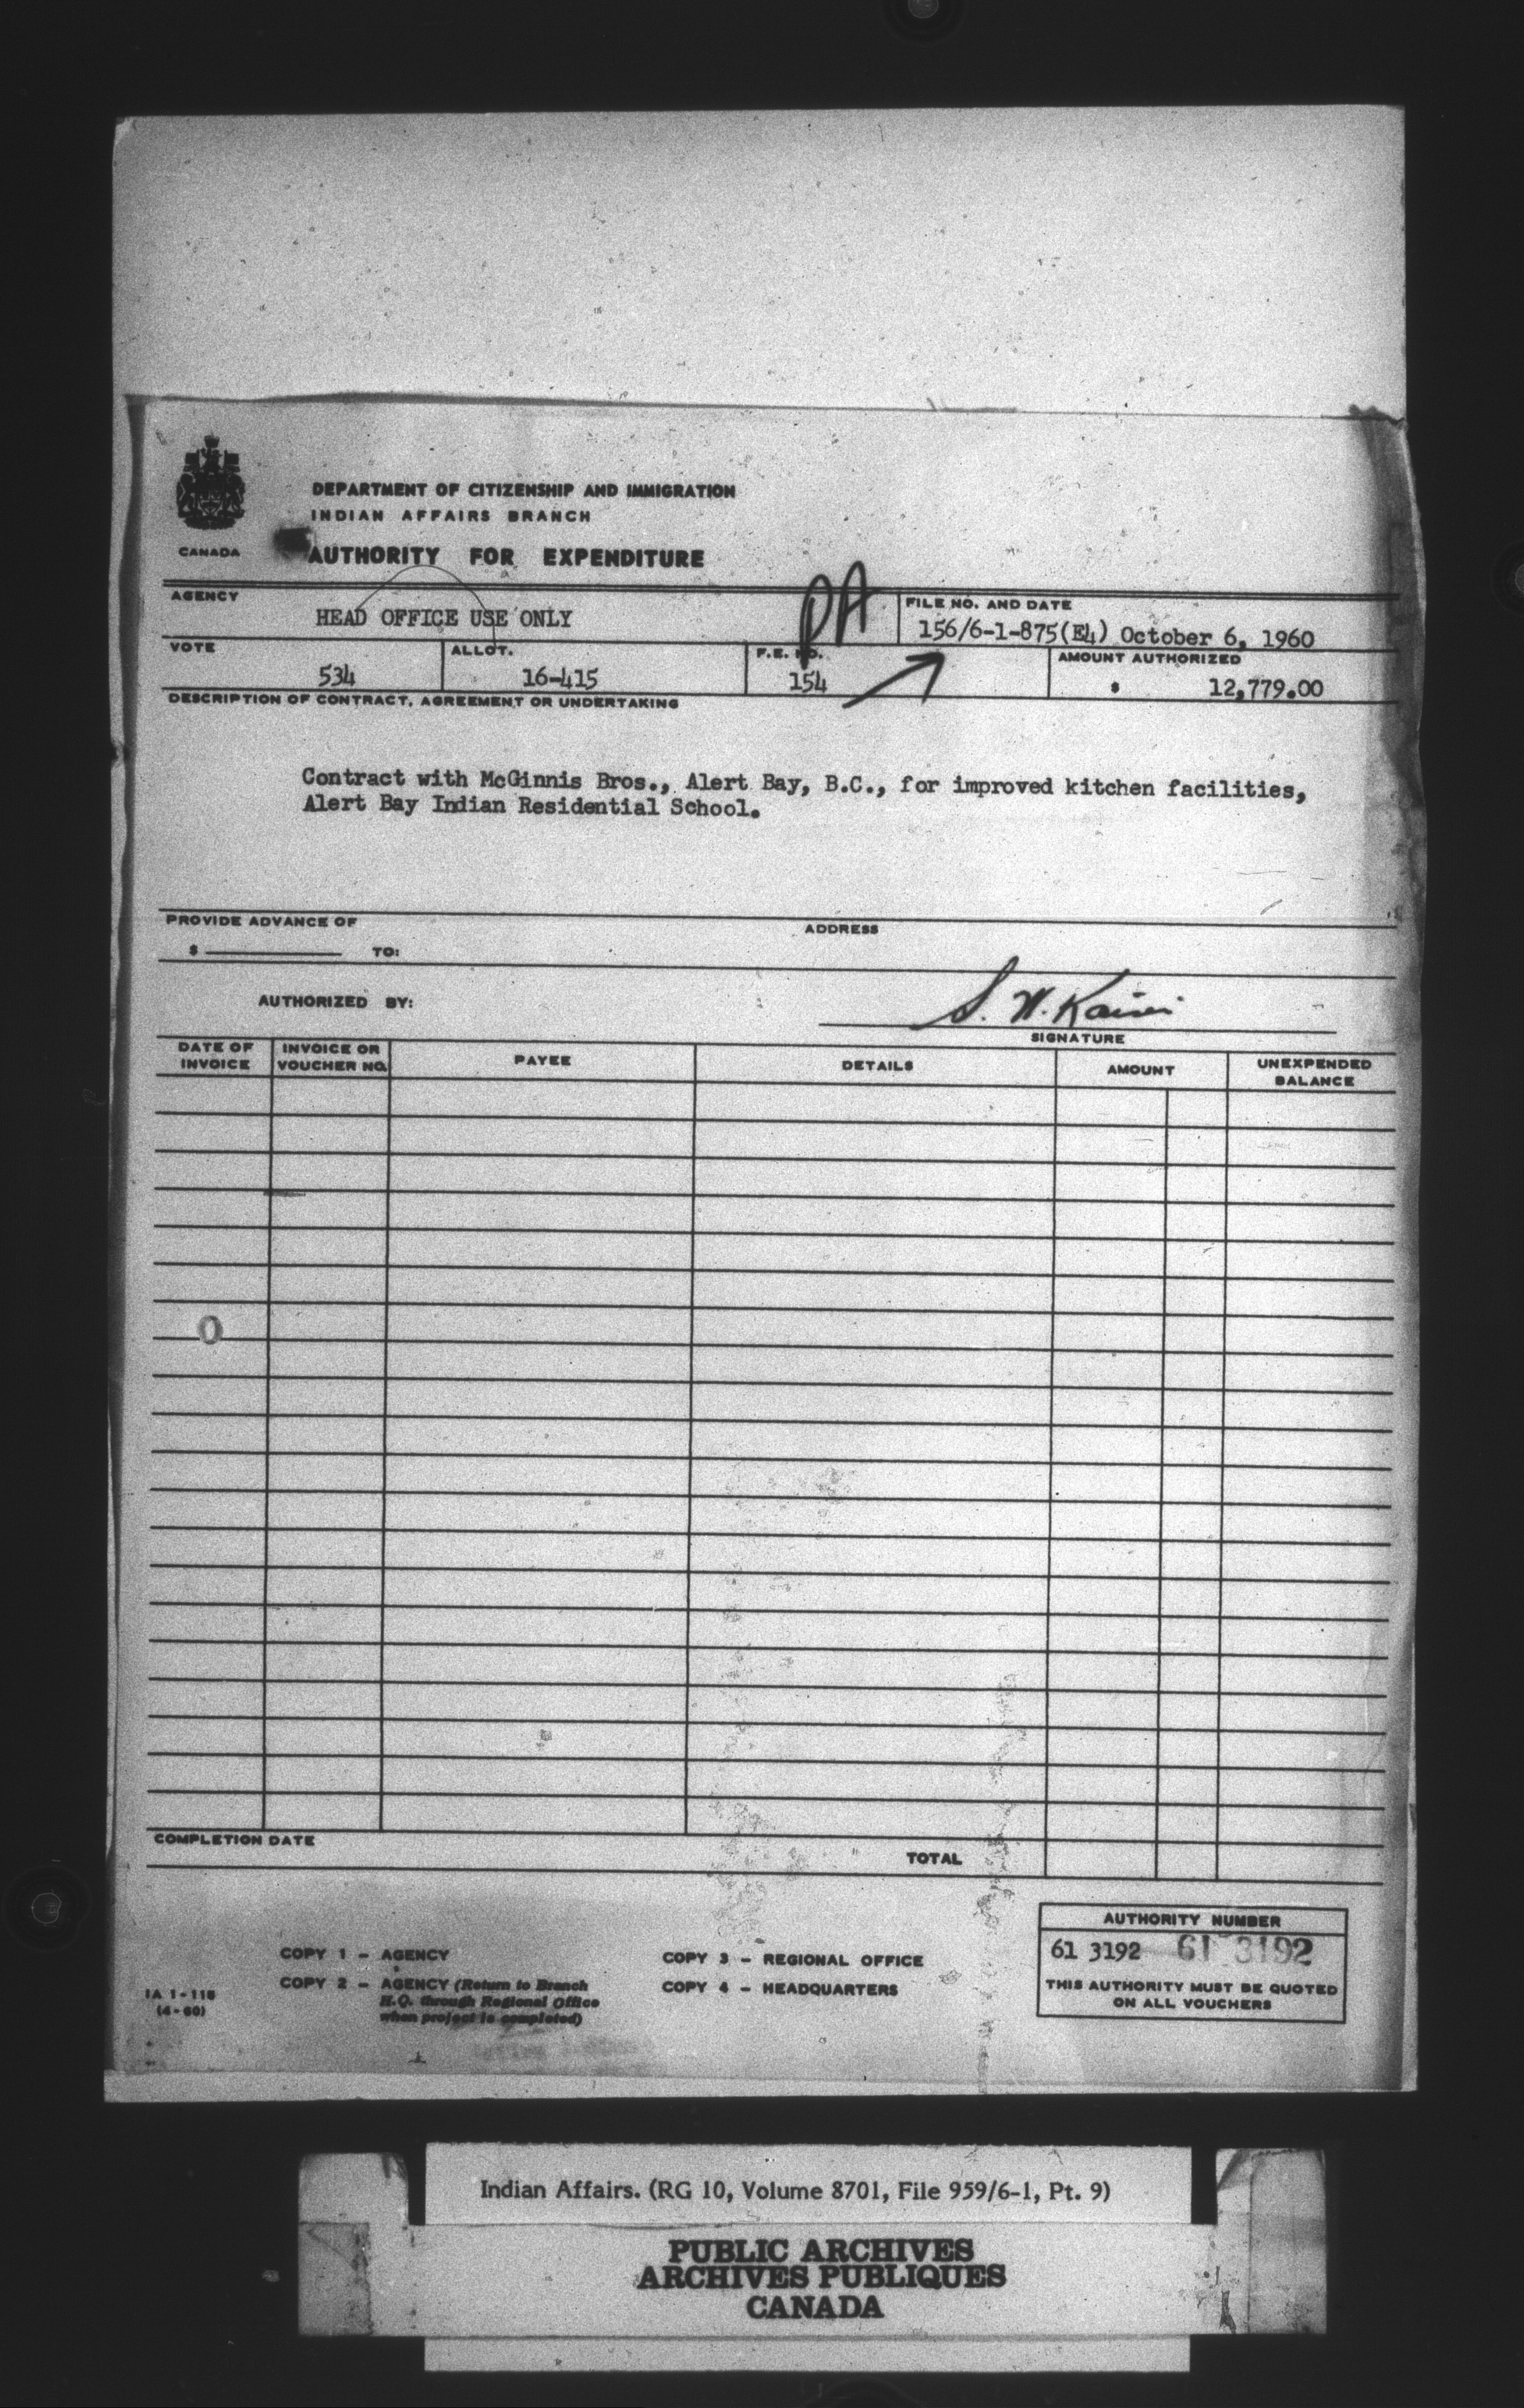 DEPARTMENT OF CITIZENSHIP AND IMMIGRATION
INDIAN AFFAIRS BRANCH
CANADA
AUTHORITY FOR EXPENDITURE
AGENCY
HEAD OFFICE USE ONLY
PA
FILE NO. AND DATE
156/6-1-875(E4) October 6, 1960
VOTE
534
ALLOT.
16-415
F.E. NO.
154
AMOUNT AUTHORIZED
$ 12,779.00
DESCRIPTION OF CONTRACT, AGREEMENT OR UNDERTAKING
Contract with McGinnis Bros., Alert Bay, B.C., for improved kitchen facilities,
Alert Bay Indian Residential School.
PROVIDE ADVANCE OF
ADDRESS
$ TO:
AUTHORIZED BY:
S. W.
SIGNATURE
DATE OF INVOICE
INVOICE OR VOUCHER NO.
PAYEE
DETAILS
AMOUNT
UNEXPENDED BALANCE
COMPLETION DATE
TOTAL
AUTHORITY NUMBER
61 3192 61 3192
THIS AUTHORITY MUST BE QUOTED
ON ALL VOUCHERS
COPY 1 - AGENCY
COPY 2 - AGENCY (Return to Branch
H.Q. through Regional Office
when project is completed)
COPY 3 - REGIONAL OFFICE
COPY 4 - HEADQUARTERS
IA 1-118
(4-60)
Indian Affairs. (RG 10, Volume 8701, File 959/6-1, Pt. 9)
PUBLIC ARCHIVES
ARCHIVES PUBLIQUES
CANADA